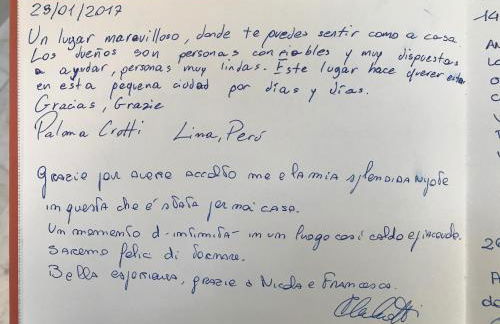 23/01/2017
Un lugar maravilloso, donde te puedes sentir como a casa
Los dueños son personas confiables y muy dispuestas
a ayudar, personas muy lindas. Este lugar hace querer estar
en esta pequena ciudad por días y días.
Gracias, Grazie
Paloma Crotti Lima, Perú
Grazie per avere accolto me e la mia splendida nipote
in questa che è stata per noi casa.
Un momento d-intimità in un luogo così caldo e piacevole.
Saremo felici di tornare.
Bella esperienza, grazie a Nicola e Francesca.
14
26